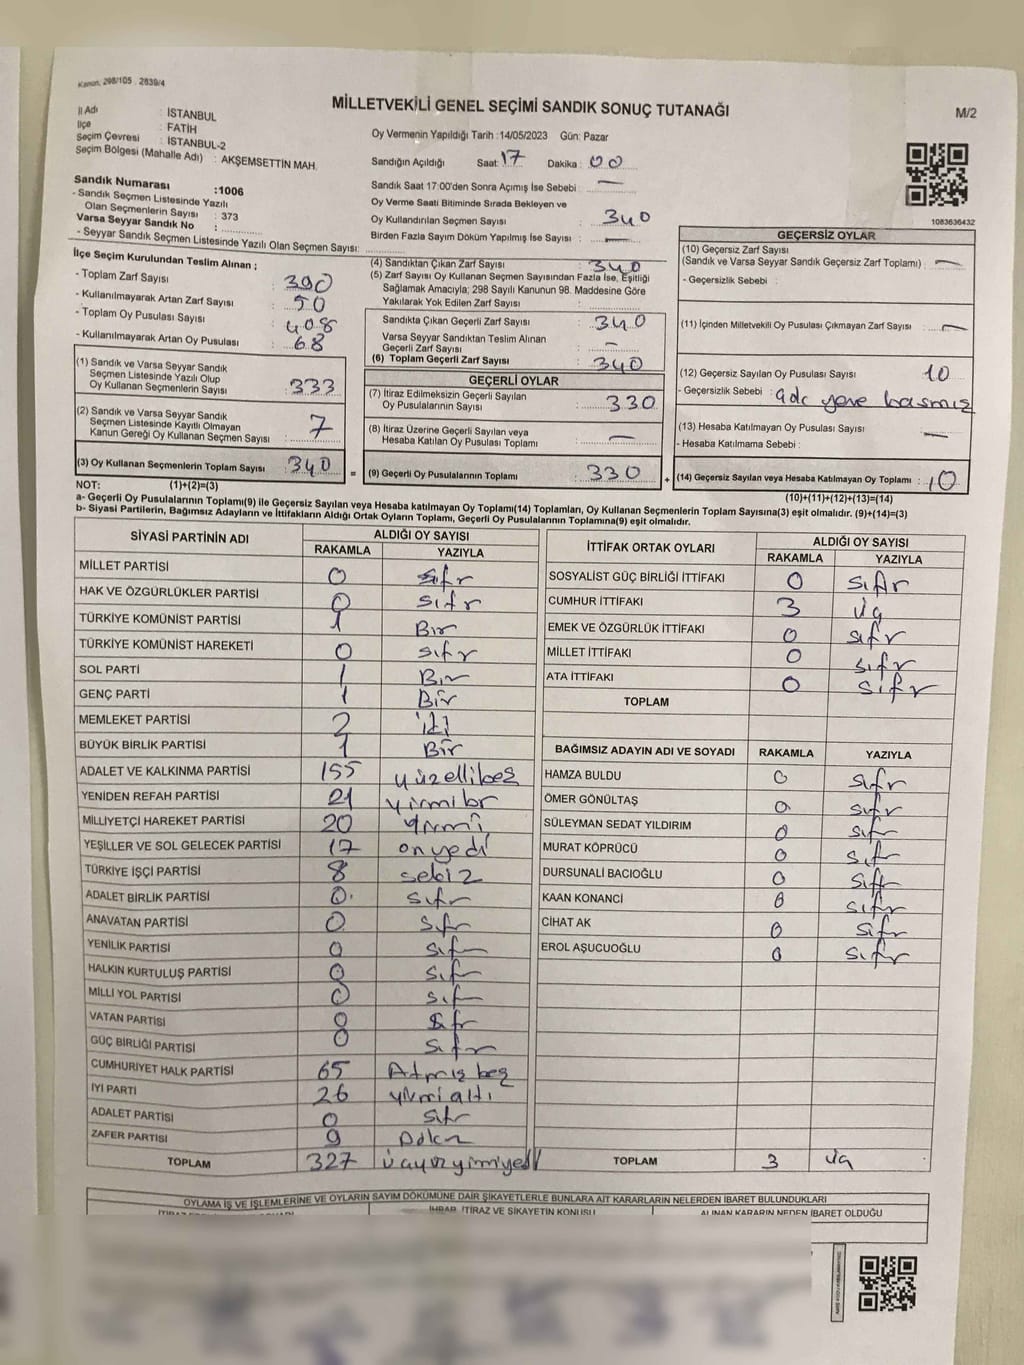 Kanun, 298/105 . 2839/4
MİLLETVEKİLİ GENEL SEÇİMİ SANDIK SONUÇ TUTANAĞI
M/2
İl Adı : İSTANBUL
İlçe : FATİH
Seçim Çevresi : İSTANBUL-2
Seçim Bölgesi (Mahalle Adı) : AKŞEMSETTİN MAH.
Sandık Numarası :1006
- Sandık Seçmen Listesinde Yazılı
Olan Seçmenlerin Sayısı : 373
Varsa Seyyar Sandık No :
- Seyyar Sandık Seçmen Listesinde Yazılı Olan Seçmen Sayısı:
Oy Vermenin Yapıldığı Tarih :14/05/2023 Gün: Pazar
Sandığın Açıldığı Saat: 17 Dakika : 00
Sandık Saat 17:00'den Sonra Açımış İse Sebebi : —
Oy Verme Saati Bitiminde Sırada Bekleyen ve
Oy Kullandırılan Seçmen Sayısı : 340
Birden Fazla Sayım Döküm Yapılmış İse Sayısı : —
1083636432
İlçe Seçim Kurulundan Teslim Alınan ;
- Toplam Zarf Sayısı : 390
- Kullanılmayarak Artan Zarf Sayısı : 50
- Toplam Oy Pusulası Sayısı : 408
- Kullanılmayarak Artan Oy Pusulası : 68
(1) Sandık ve Varsa Seyyar Sandık
Seçmen Listesinde Yazılı Olup
Oy Kullanan Seçmenlerin Sayısı : 333
(2) Sandık ve Varsa Seyyar Sandık
Seçmen Listesinde Kayıtlı Olmayan
Kanun Gereği Oy Kullanan Seçmen Sayısı : 7
(3) Oy Kullanan Seçmenlerin Toplam Sayısı : 340
(4) Sandıktan Çıkan Zarf Sayısı : 340
(5) Zarf Sayısı Oy Kullanan Seçmen Sayısından Fazla İse, Eşitliği
Sağlamak Amacıyla; 298 Sayılı Kanunun 98. Maddesine Göre
Yakılarak Yok Edilen Zarf Sayısı :
Sandıkta Çıkan Geçerli Zarf Sayısı : 340
Varsa Seyyar Sandıktan Teslim Alınan
Geçerli Zarf Sayısı : —
(6) Toplam Geçerli Zarf Sayısı : 340
GEÇERLİ OYLAR
(7) İtiraz Edilmeksizin Geçerli Sayılan
Oy Pusulalarının Sayısı : 330
(8) İtiraz Üzerine Geçerli Sayılan veya
Hesaba Katılan Oy Pusulası Toplamı : —
= (9) Geçerli Oy Pusulalarının Toplamı : 330
GEÇERSİZ OYLAR
(10) Geçersiz Zarf Sayısı
(Sandık ve Varsa Seyyar Sandık Geçersiz Zarf Toplamı) : —
- Geçersizlik Sebebi :
(11) İçinden Milletvekili Oy Pusulası Çıkmayan Zarf Sayısı : —
(12) Geçersiz Sayılan Oy Pusulası Sayısı : 10
- Geçersizlik Sebebi : basmış
(13) Hesaba Katılmayan Oy Pusulası Sayısı : —
- Hesaba Katılmama Sebebi :
+ (14) Geçersiz Sayılan veya Hesaba Katılmayan Oy Toplamı : 10
NOT: (1)+(2)=(3)
(10)+(11)+(12)+(13)=(14)
a- Geçerli Oy Pusulalarının Toplamı(9) ile Geçersiz Sayılan veya Hesaba katılmayan Oy Toplamı(14) Toplamları, Oy Kullanan Seçmenlerin Toplam Sayısına(3) eşit olmalıdır. (9)+(14)=(3)
b- Siyasi Partilerin, Bağımsız Adayların ve İttifakların Aldığı Ortak Oyların Toplamı, Geçerli Oy Pusulalarının Toplamına(9) eşit olmalıdır.
SİYASİ PARTİNİN ADI ALDIĞI OY SAYISI
RAKAMLA YAZIYLA
MİLLET PARTİSİ 0 sıfr
HAK VE ÖZGÜRLÜKLER PARTİSİ 0 sıfr
TÜRKİYE KOMÜNİST PARTİSİ 1 Bir
TÜRKİYE KOMÜNİST HAREKETİ 0 sıfr
SOL PARTİ 1 Bir
GENÇ PARTİ 1 Bir
MEMLEKET PARTİSİ 2 iki
BÜYÜK BİRLİK PARTİSİ 1 Bir
ADALET VE KALKINMA PARTİSİ 155 yüzellibeş
YENİDEN REFAH PARTİSİ 21 yirmibr
MİLLİYETÇİ HAREKET PARTİSİ 20 yirmi
YEŞİLLER VE SOL GELECEK PARTİSİ 17 onyedi
TÜRKİYE İŞÇİ PARTİSİ 8 sekiz
ADALET BİRLİK PARTİSİ 0 sıfr
ANAVATAN PARTİSİ 0 sıfr
YENİLİK PARTİSİ 0 sıfr
HALKIN KURTULUŞ PARTİSİ 0 sıfr
MİLLİ YOL PARTİSİ 0 sıfr
VATAN PARTİSİ 0 sıfr
GÜÇ BİRLİĞİ PARTİSİ 0 sıfr
CUMHURİYET HALK PARTİSİ 65 Atmışbeş
İYİ PARTİ 26 yirmialtı
ADALET PARTİSİ 0 sıfr
ZAFER PARTİSİ 9 Dokuz
TOPLAM 327 üçyüzyirmiyedi
İTTİFAK ORTAK OYLARI ALDIĞI OY SAYISI
RAKAMLA YAZIYLA
SOSYALİST GÜÇ BİRLİĞİ İTTİFAKI 0 sıfır
CUMHUR İTTİFAKI 3 üç
EMEK VE ÖZGÜRLÜK İTTİFAKI 0 sıfr
MİLLET İTTİFAKI 0 sıfr
ATA İTTİFAKI 0 sıfr
TOPLAM
BAĞIMSIZ ADAYIN ADI VE SOYADI RAKAMLA YAZIYLA
HAMZA BULDU 0 sıfr
ÖMER GÖNÜLTAŞ 0 sıfr
SÜLEYMAN SEDAT YILDIRIM 0 sıfr
MURAT KÖPRÜCÜ 0 sıfr
DURSUNALİ BACIOĞLU 0 sıfr
KAAN KONANCİ 0 sıfr
CİHAT AK 0 sıfr
EROL AŞUCUOĞLU 0 sıfr
TOPLAM 3 üç
OYLAMA İŞ VE İŞLEMLERİNE VE OYLARIN SAYIM DÖKÜMÜNE DAİR ŞİKAYETLERLE BUNLARA AİT KARARLARIN NELERDEN İBARET BULUNDUKLARI
İHBAR, İTİRAZ VE ŞİKAYETİN KONUSU ALINAN KARARIN NEDEN İBARET OLDUĞU